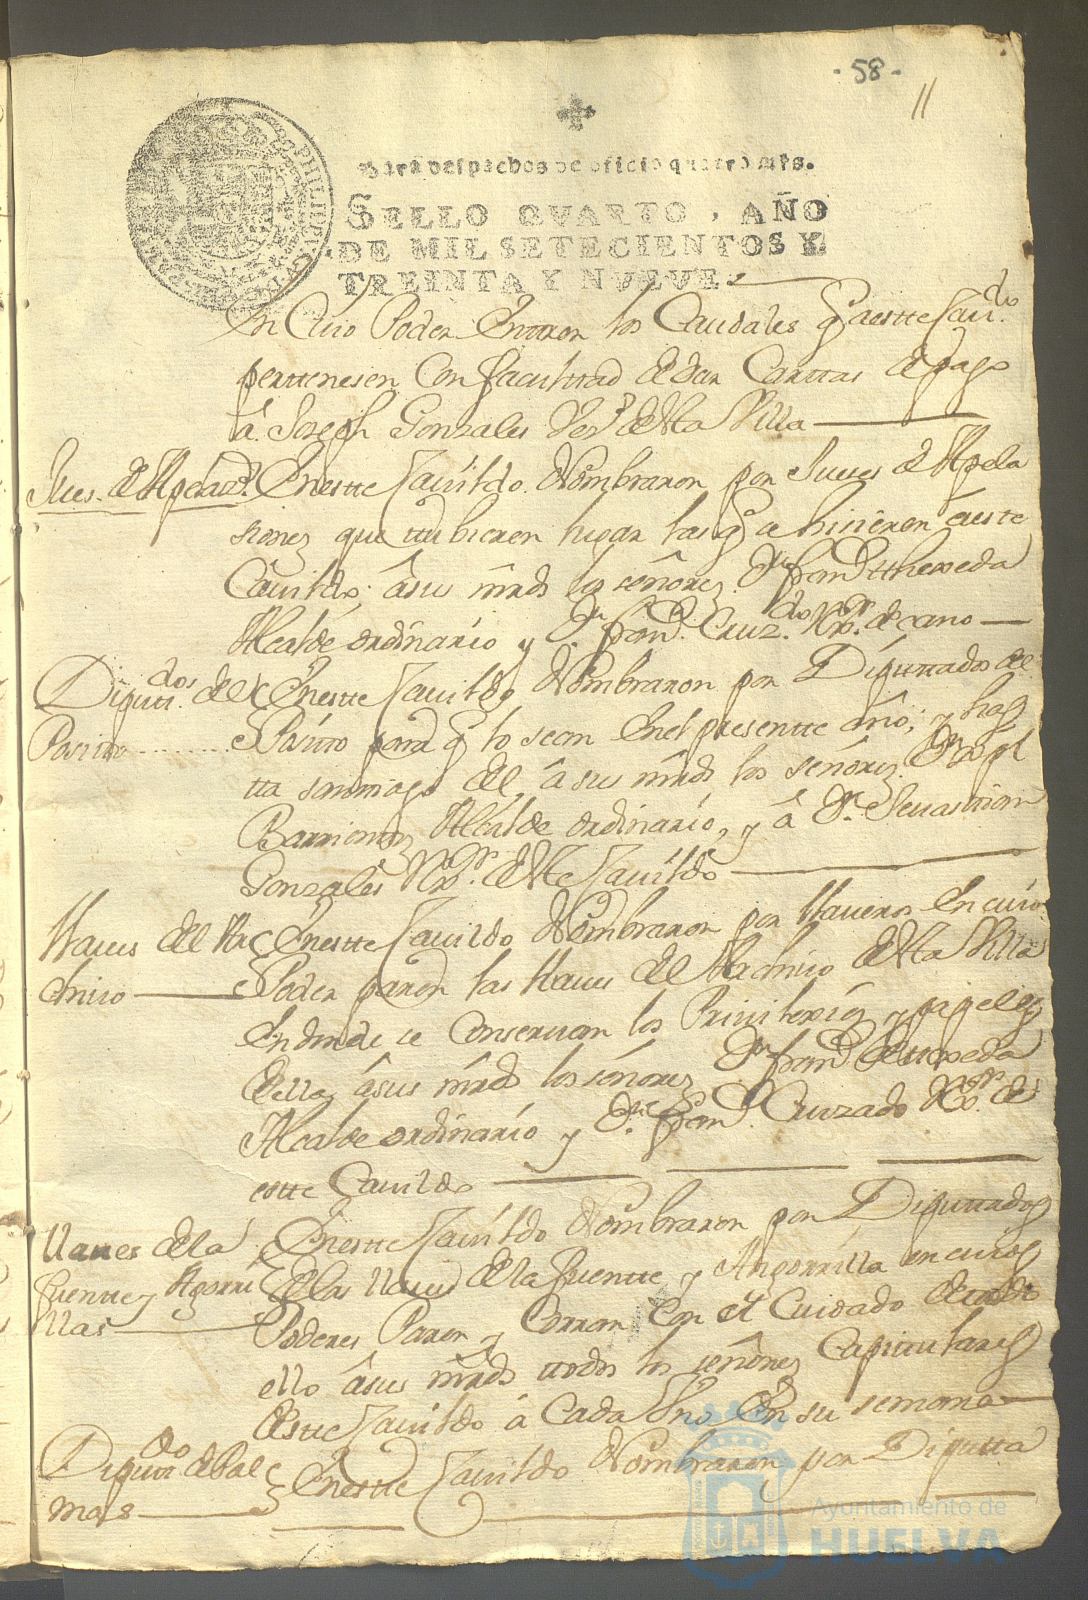 - 58 -
11
Para despachos de oficio quatro mrs.
SELLO QVARTO, AÑO
DE MIL SETECIENTOS Y
TREINTA Y NVEVE.
PHILIPPVS
En Cuio Poder Entren los Caudales q aestte Cau.do
perttenesen Con faculttad de dar Carttas de pago
â Joseph Gonzales Vez.º de Esta Villa
Jues. de Apelaz.
Enestte Cauildo Nombraron por Jueses de Apela
siones que ttubieren lugar las q se hisieren â este
Cauildo. âsus mrds los señores Dn fran.co tthexeda
Alcalde ordinario y Dn fran.co Cruz.do Rxor. decano
Diputt.dos del
Posito
Enestte Cauildo Nombraron por Diputtados del
Posito para q lo sean Enel presentte año; y has
tta santtiago del â sus mrds los señores
Barrientos Alcalde ordinario, y â Dn. Sevasttian
Gonzales Rxor. de estte Cauildo
llaues del Ar
chivo
Enestte Cauildo Nombraron por llaueros En cuio
Poder paren las llaues del Archivo de Esta Villa
En donde se Conseruan los Privilexios y papeles
della, âsus mrds los señores Dn fran.co de ttexeda
Alcalde ordinario y Dn fran.co Cruzado Rxor. de
estte Cauildo
llaues de la
fuentte y Agorri
llas
Enestte Cauildo Nombraron por Diputtados
de las llaues de la fuentte y Angorrilla en cuios
Poderes Paren y Corran Con el Cuidado de ttodo
ello âsus mrds ttodos los señores Capittulares
destte Cauildo â Cada Vno En su semana
Diputt.do de Pal
mas
Enestte Cauildo Nombraron por Diputta
Ayuntamiento de
HUELVA